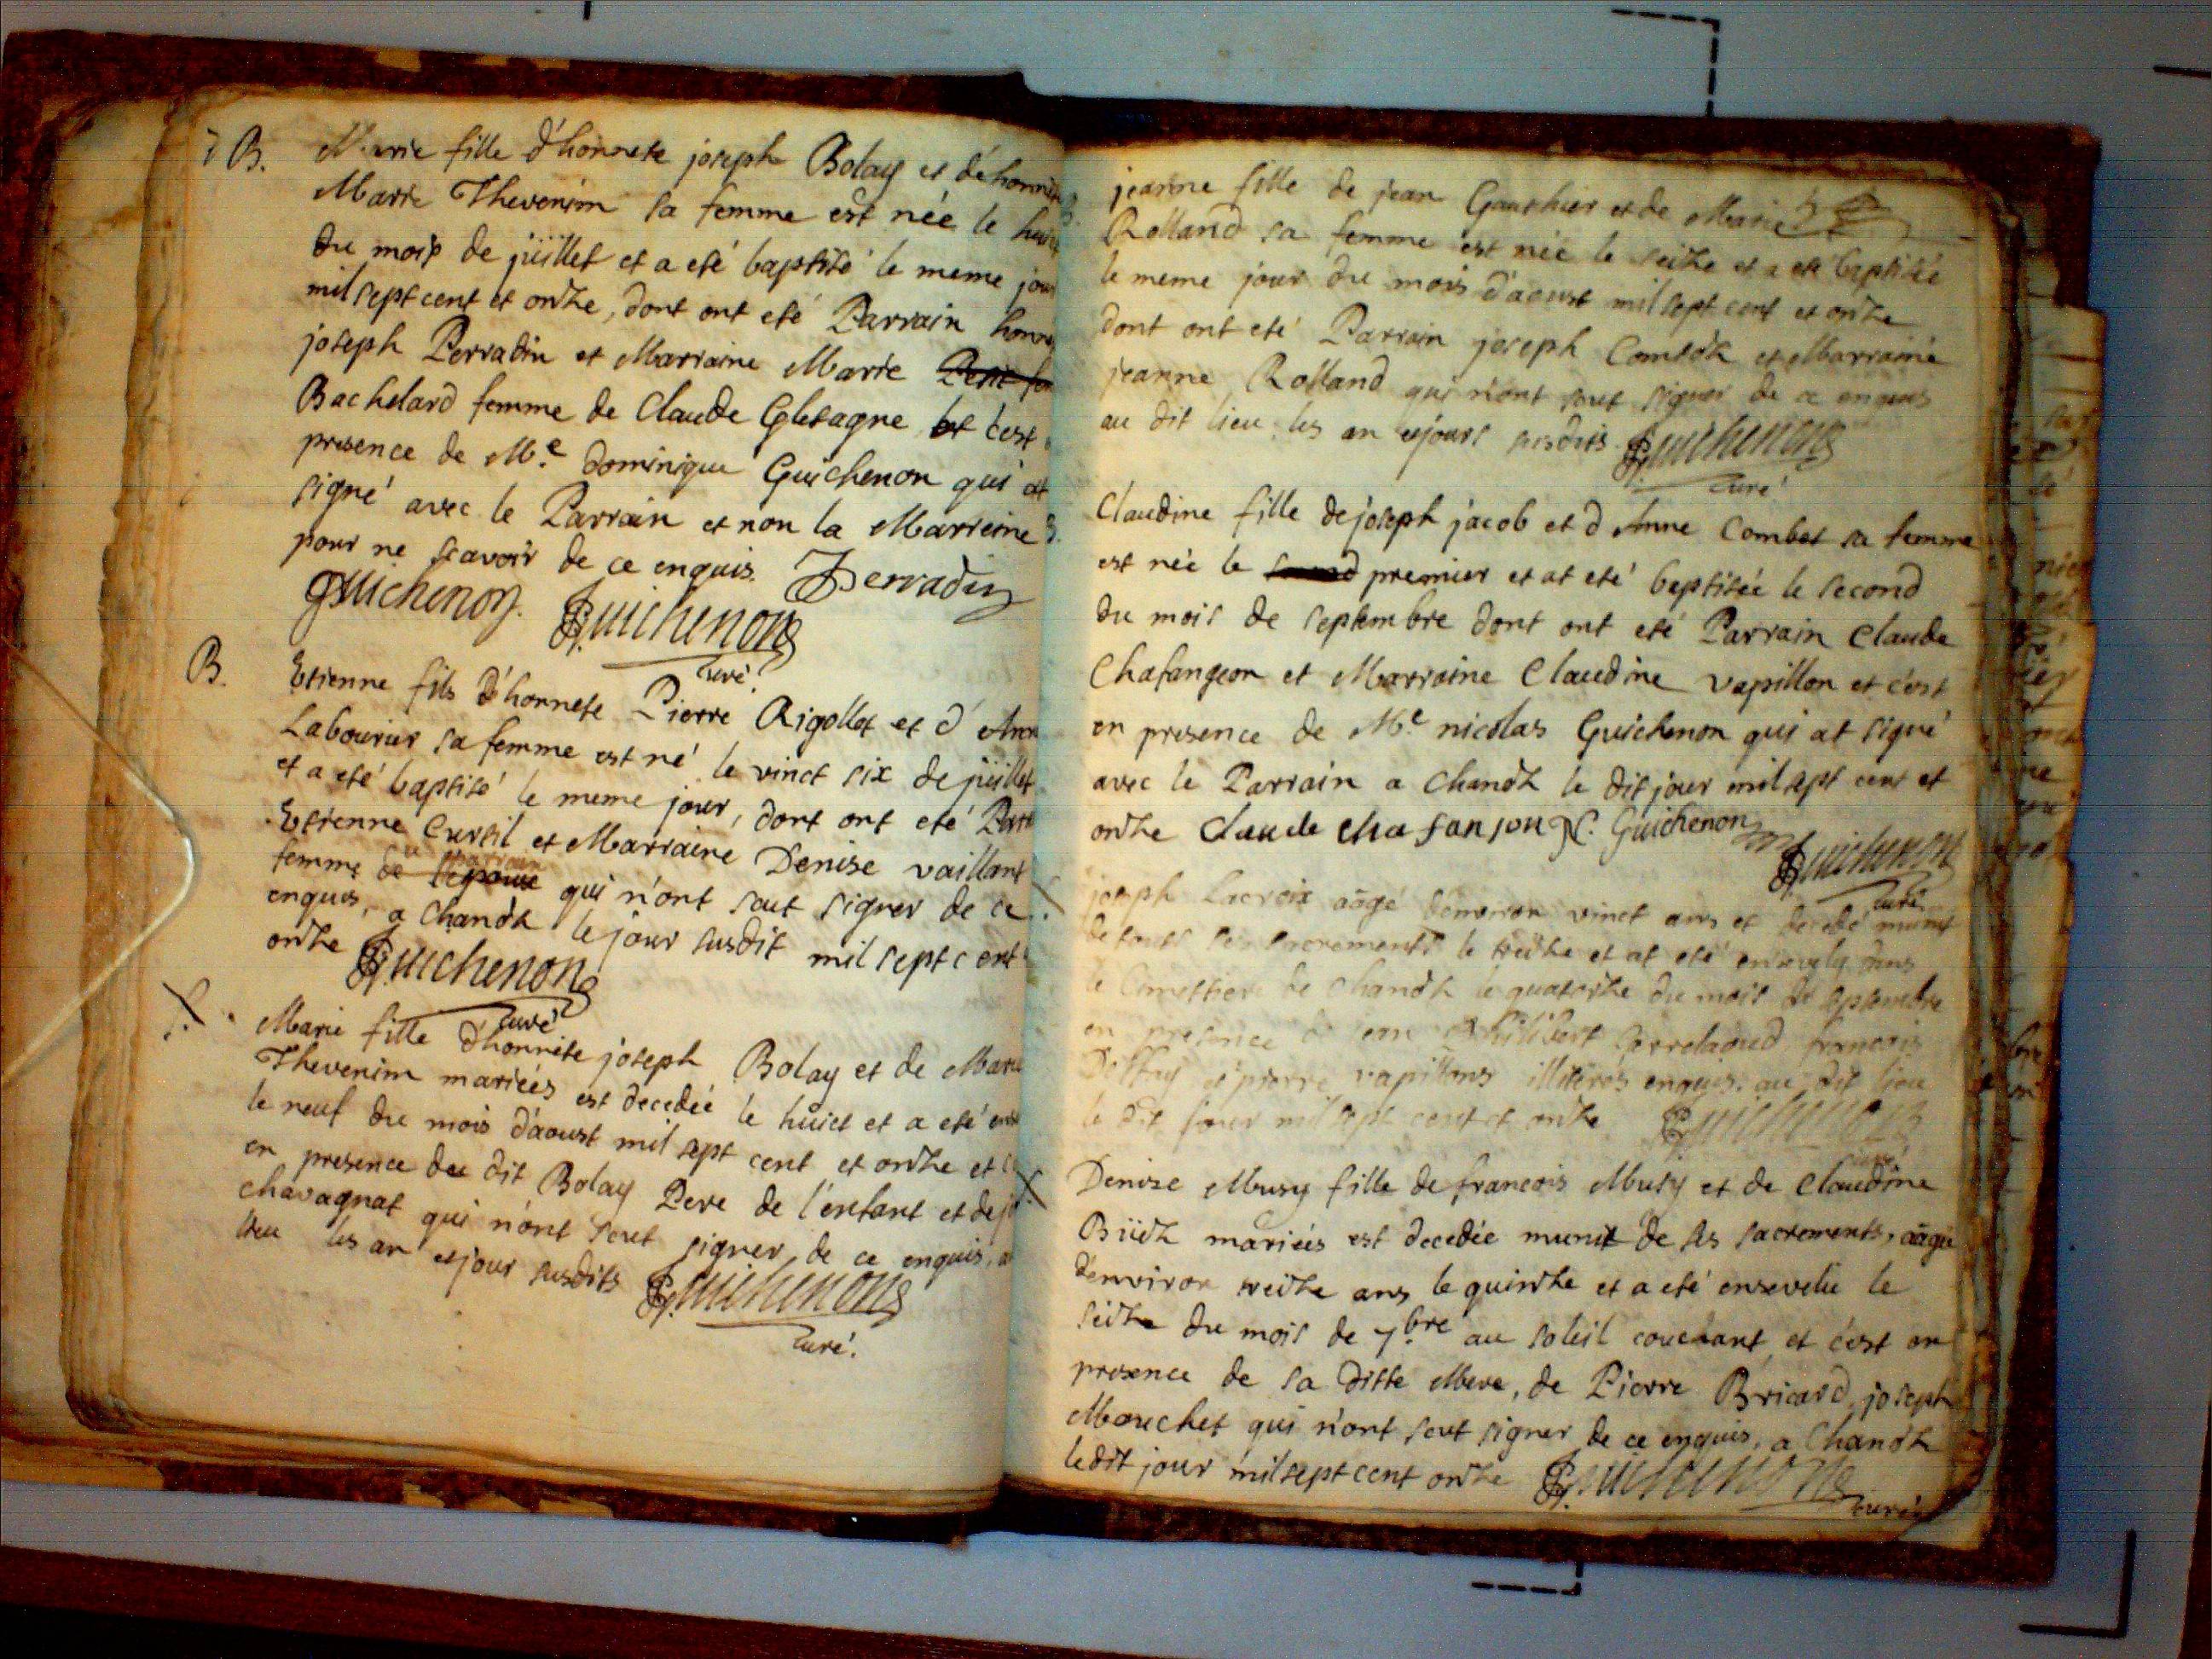 B. Marie fille d'honnete joseph Bolay et d'honnete
Marie Thevenim sa femme est née le huict
du mois de juillet et a eté baptisé le meme jour
mil sept cent et onze, dont ont eté Parrain honne
joseph Perradin et Marraine Marie
Bachelard femme de Claude Gletagne et c'est
presence de Me. dominique Guichenon qui at
signé avec le Parrain et non la Marreine
pour ne scavoir de ce enquis. Perradin
Guichenon. Guichenon
curé
B. Etienne fils d'honnete Pierre Rigollet et d'Anne
Labourier sa femme est né le vinct six de juillet
et a eté baptisé le meme jour, dont ont eté Parr
Etienne Curtil et Marraine Denise vaillant
femme de qui n'ont scut signer de ce
enquis, a Chandz le jour susdit mil sept cent
onze Guichenon
curé
Marie fille d'honnete joseph Bolay et de Marie
Thevenim mariées est decedée le huict et a eté
le neuf du mois d'aoust mil sept cent et onze et
en presence du dit Bolay Pere de l'enfant et de
chavagnat qui n'ont scut signer, de ce enquis,
lieu les an et jour susdits Guichenon
curé.
jeanne fille de jean Gauthier et de Marie
Rolland sa femme est née le seize et a eté baptisée
le meme jour du mois d'aoust mil sept cent et onze
dont ont eté Parrain joseph Combdz et Marraine
jeanne Rolland qui n'ont scut signer de ce enquis
au dit lieu les an et jours susdits Guichenon
curé
Claudine fille de joseph jacob et d'Anne Combet sa femme
est née le premier et at eté baptisée le second
du mois de septembre dont ont eté Parrain Claude
Chafangeon et Marraine Claudine vapillon et c'est
en presence de Me. nicolas Guichenon qui at signé
avec le Parrain a Chandz le dit jour mil sept cent et
onze Claude chafanjon N. Guichenon
Guichenon
curé
joseph Lacroix aagé d'environ vinct ans et decedé munit
de touts ses sacrements le treize et at eté ensevely dans
le Cimettiere de Chandz le quatorze du mois de septembre
en presence de philibert francois
et pierre vapillons illiterés enquis, au dit lieu
le dit jour mil sept cent et onze Guichenon
curé
Denise Musy fille de francois Musy et de Claudine
Büidz mariées est decedée munit de ses sacrements, aagée
d'environ treize ans le quinze et a eté ensevelie le
seize du mois de 7.bre au soleil couchant, et c'est en
presence de sa ditte Mere, de Pierre Bricard, joseph
Mouchet qui n'ont scut signer de ce enquis, a Chandz
le dit jour mil sept cent onze Guichenon
curé